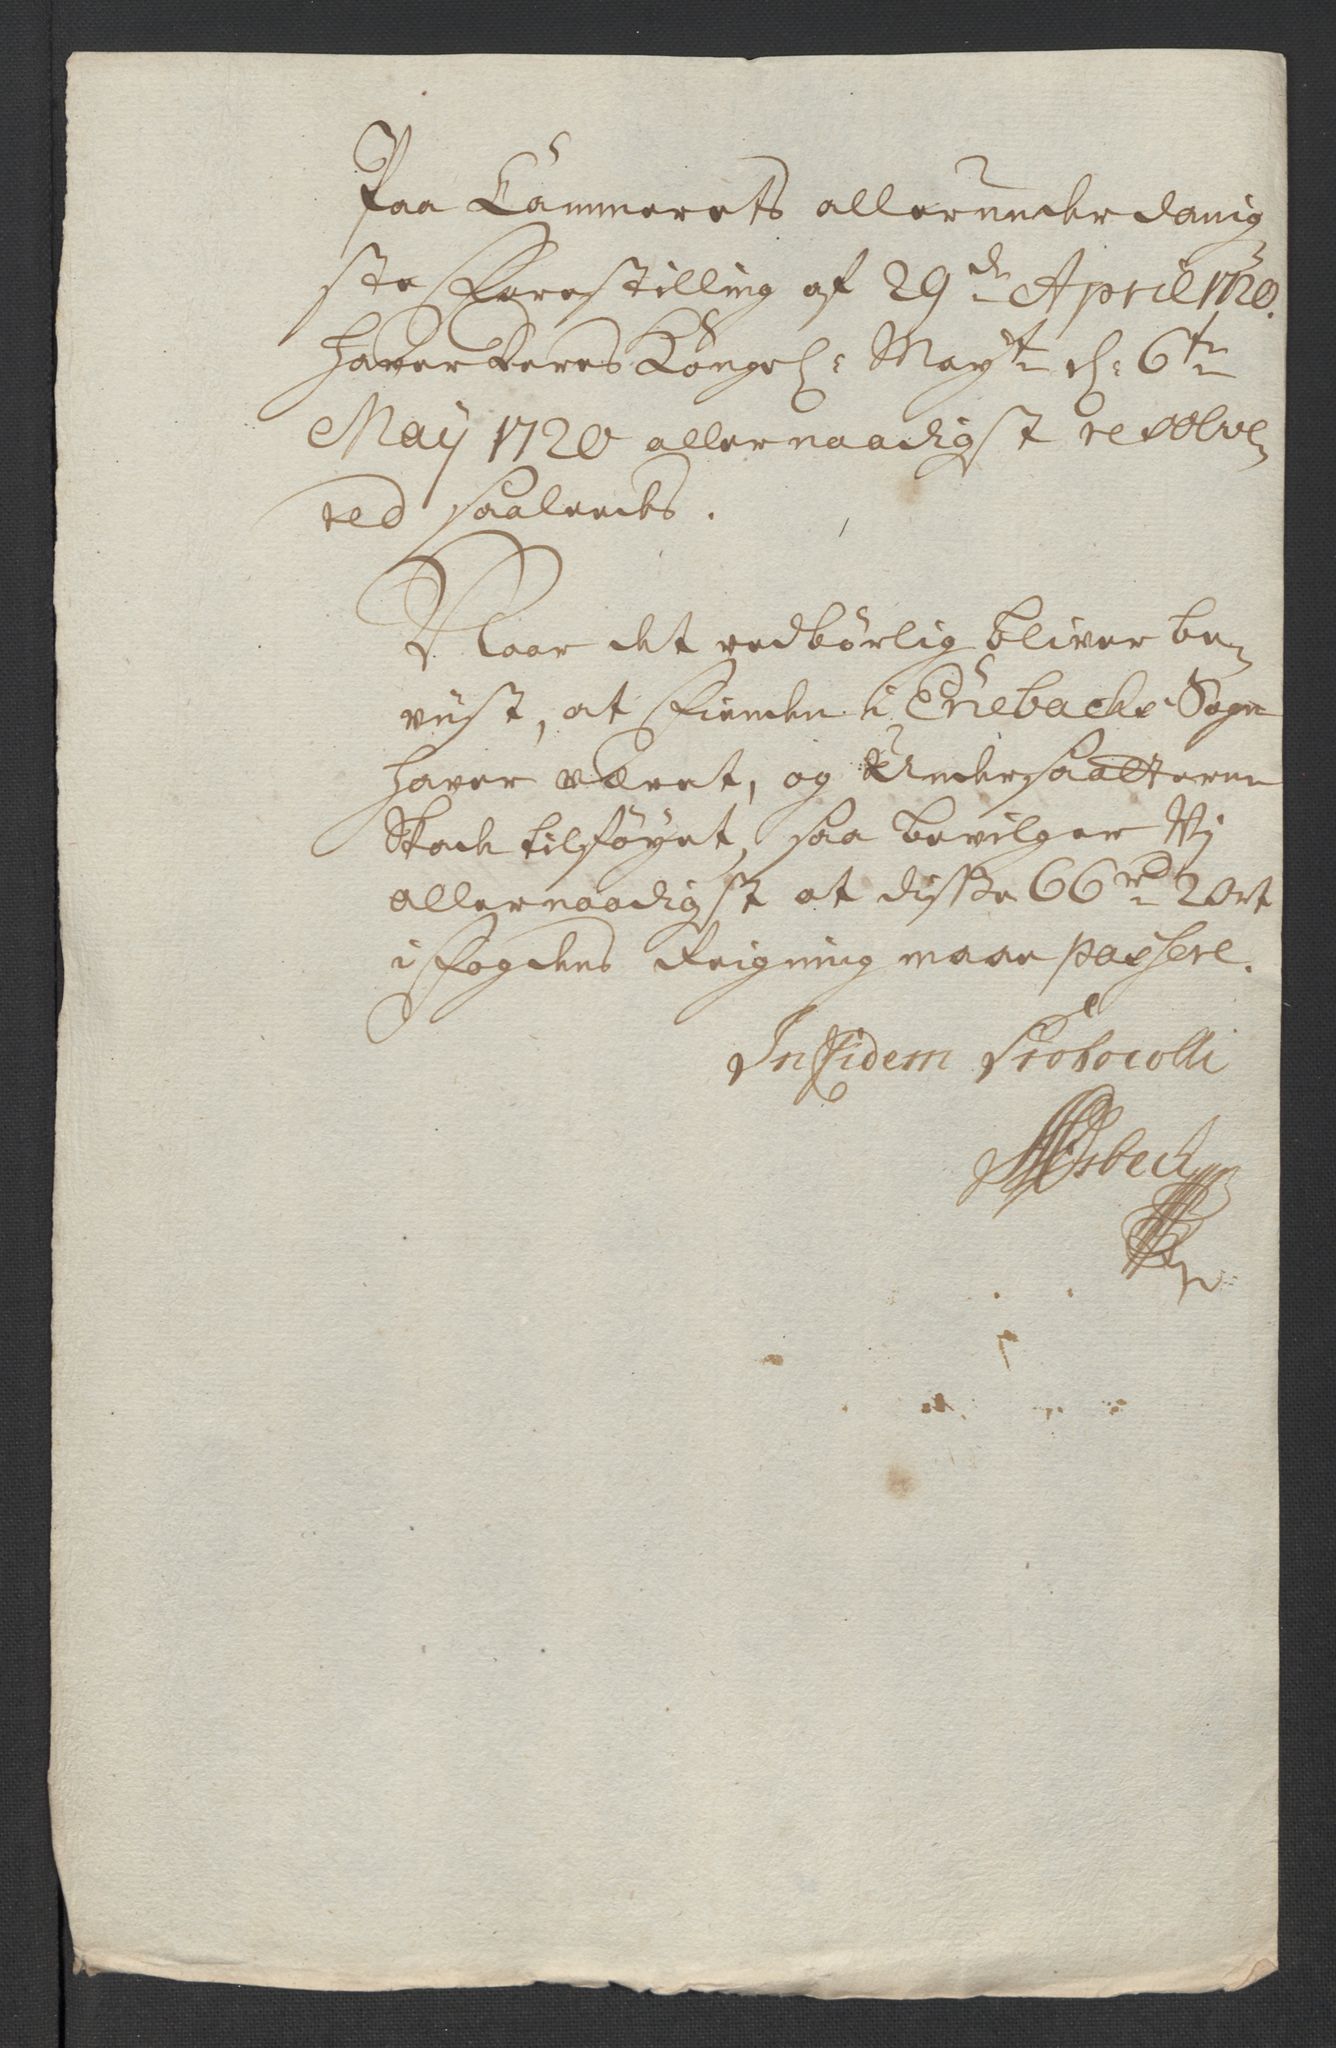 Paa Cammerets allerunderdanig-
ste Forestilling af 29de April 1720.
haver Deres Kongel: Mayt d: 6te
Maij 1720 allernaadigst resolve-
red saaledes.
Naar det vedbörlig bliver be-
viist, at Fienden i Enebachs Sogn
haver været, og Undersaatterne
Skade tilföyet, saa bevilger Vj
allernaadigst at disse 66 rd 2 ort
i Fogdens Reigning maae passere.
In Fidem Protocolli